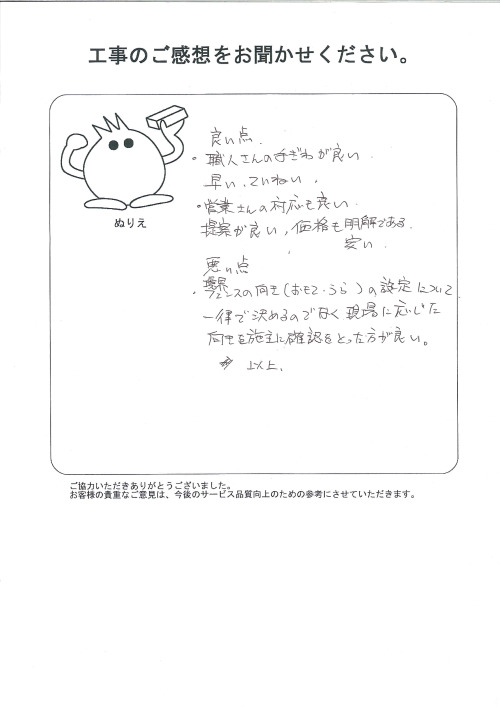 工事のご感想をお聞かせください。
ぬりえ
良い点.
・職人さんの手ぎわが良い.
早い、ていねい.
・営業さんの対応も良い.
提案が良い,価格も明解である.
安い.
悪い点
・境界フェンスの向き(おもて・うら)の設定について
一律で決めるのでなく現場に応じた
向きを施主に確認をとった方が良い。
以上.
ご協力いただきありがとうございました。
お客様の貴重なご意見は、今後のサービス品質向上のための参考にさせていただきます。